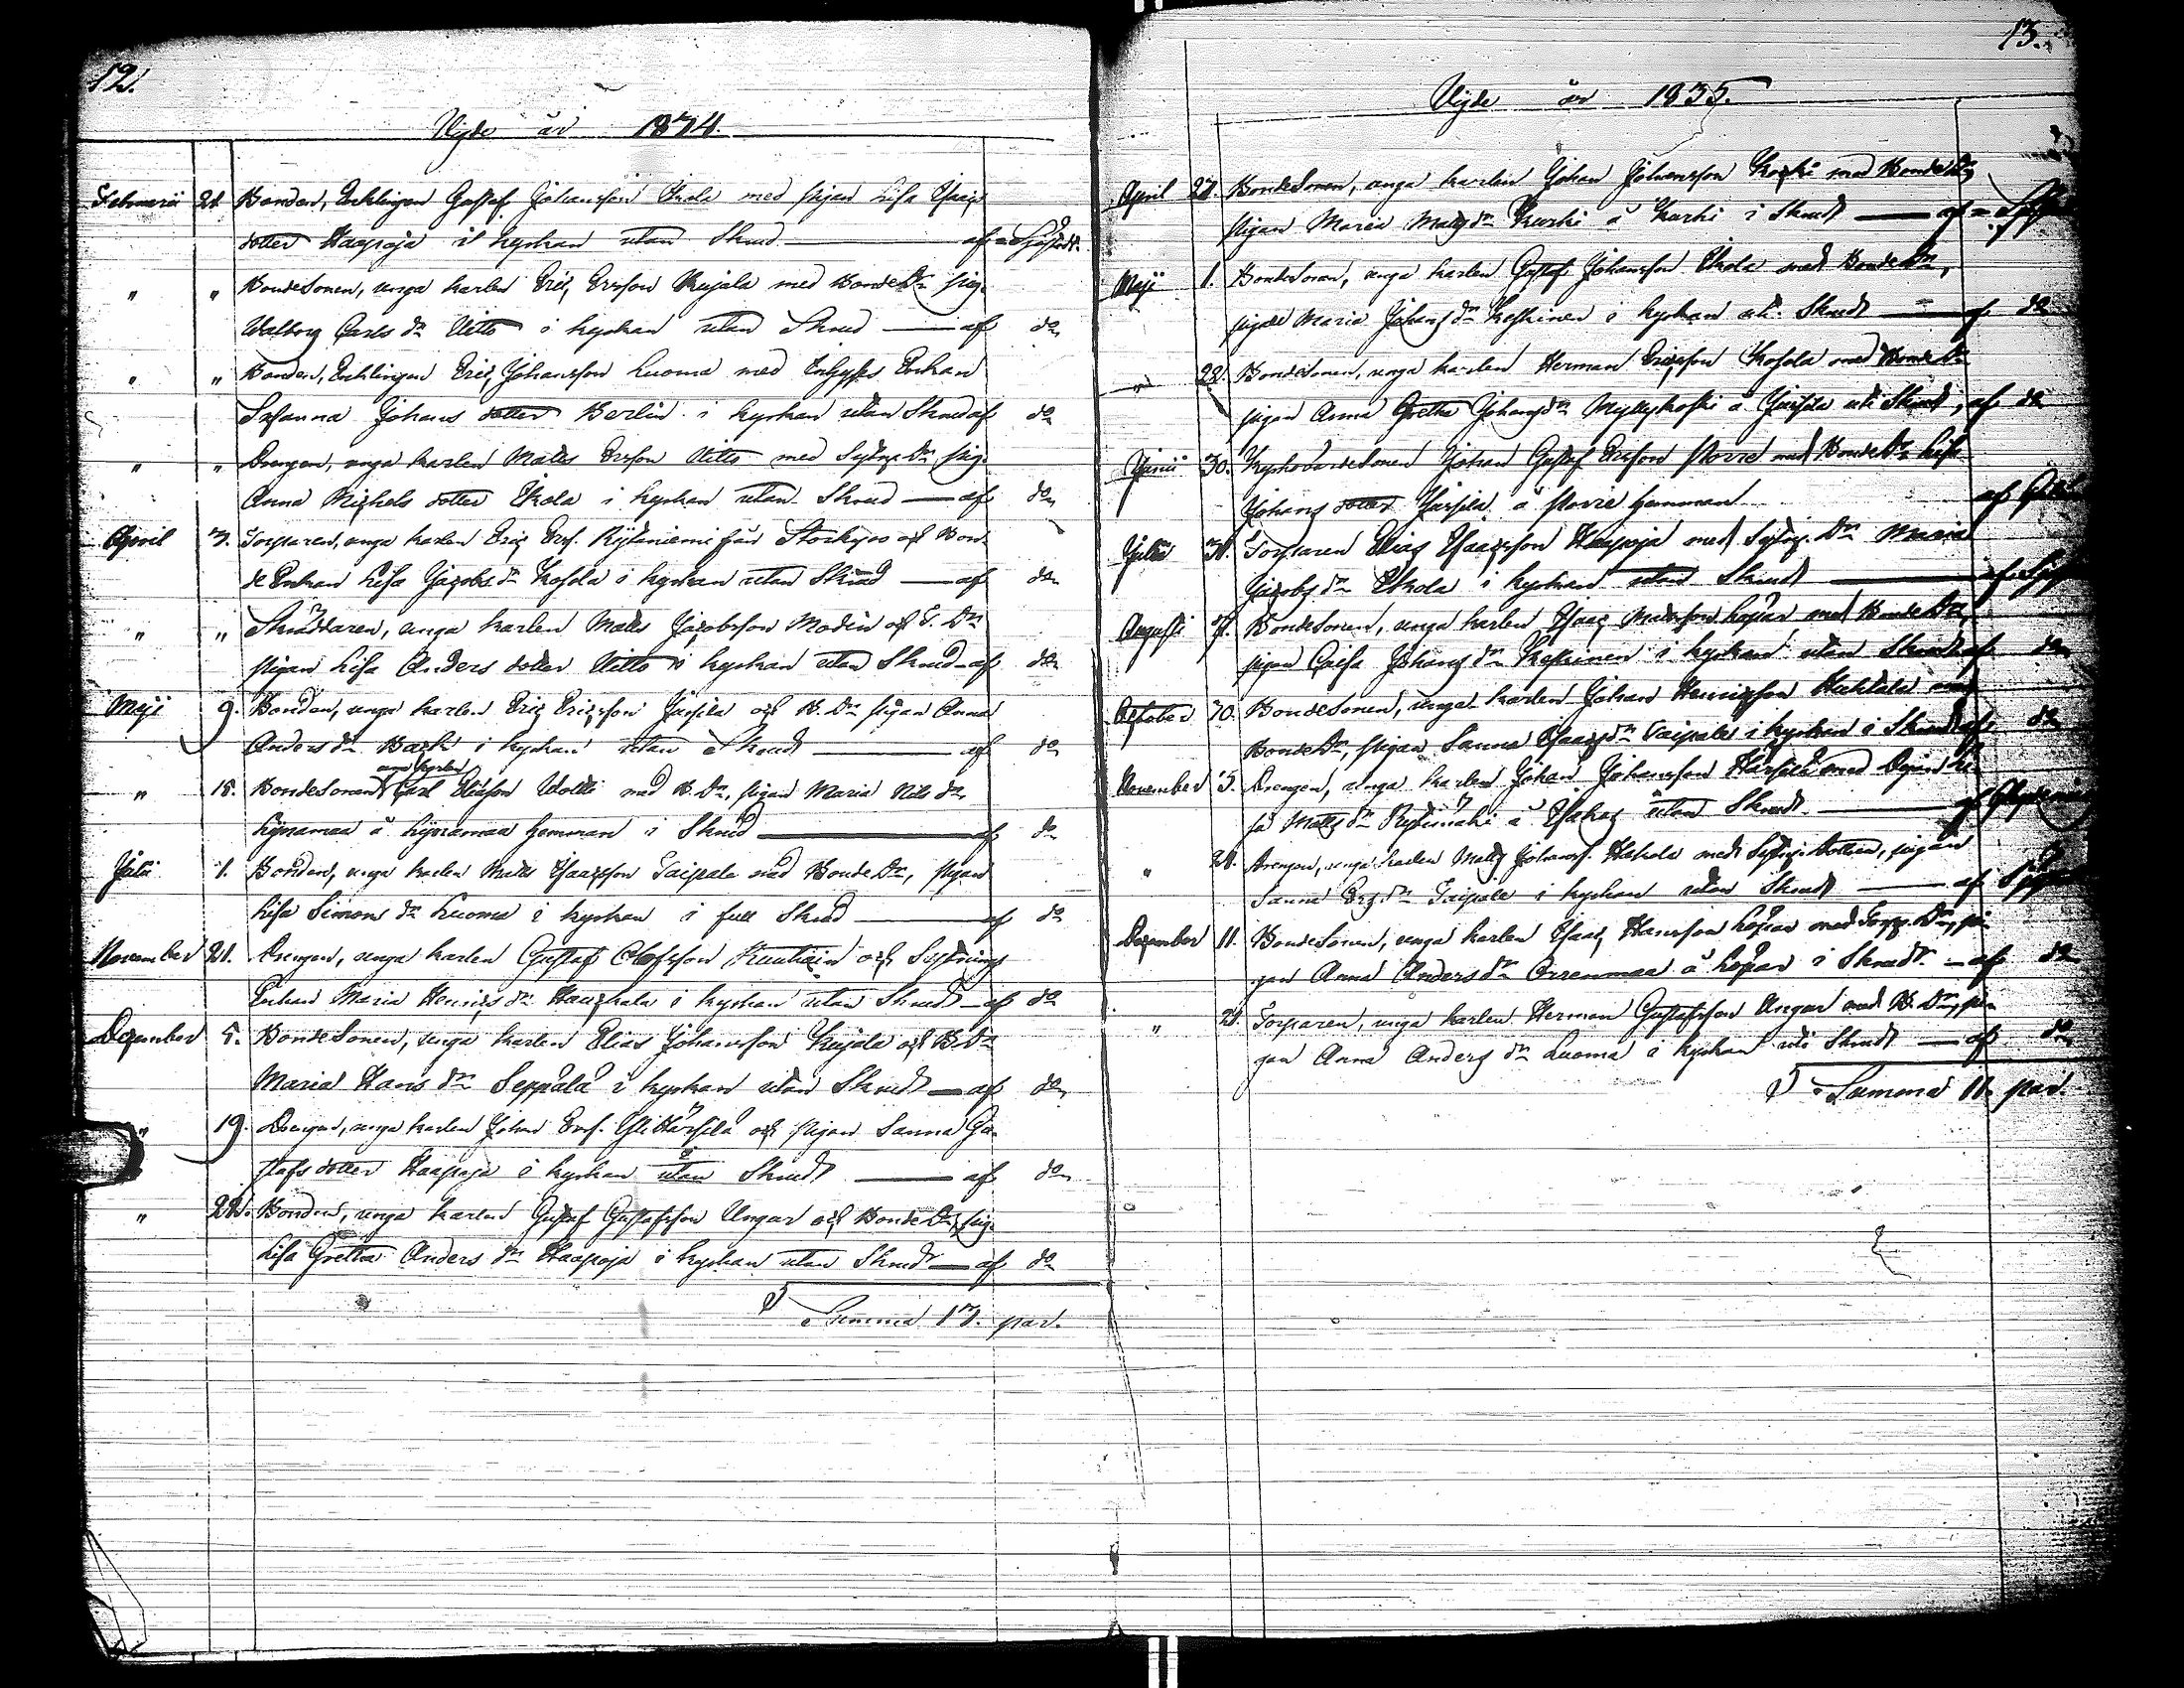 12.
Vigde år 1834.
Februarii 21. Bonden, Enklingen Gustaf Johansson Skola med pigan Lisa Isacs
dotter Haapoja i kyrkan utan Skrud — af
" " Bondesonen, unga karlen Eric Ersson Kujala med Bonde Dr pig.
Walborg Carls dr Nitto i kyrkan utan Skrud — af do
" " Bonden, Enklingen Eric Johansson Luoma med Enkan
Susanna Johans dotter Berlin i kyrkan utan Skrud af do
" " Drengen, unga karlen Matts Ersson Nitto med Sytng. Dr pig.
Anna Michels dotter Skola i kyrkan utan Skrud — af do
April 3. Torparen, unga karlen Eric Ersf. Rytiniemi från Storkyro och Bon-
de Enkan Lisa Jacobs dr Kosola i kyrkan utan Skrud — af do
" " Skräddaren, unga karlen Matts Jacobsson Modin och T. Dr
pigan Lisa Anders dotter Nitto i kyrkan utan Skrud - af do
Maji 9. Bonden, unga karlen Eric Ericsson Jäisilä och B. Dr pigan Anna
Anders dr i kyrkan utan Skrud — af do
" 18. Bondesonen unga karlen Carl Eliasson med B. Dr, pigan Maria Nils dr
Lynamaa å Lynamaa hemman i Skrud — af do
Julii 1. Bonden, unga karlen Matts Isacsson Taipale med Bonde Dr, pigan
Lisa Simons dr Luoma i kyrkan i full Skrud — af do
November 21. Drengen, unga karlen Gustaf Olofsson och Sytnings
Enkan Maria Henrics dr i kyrkan utan Skrud - af do
December 5. Bondesonen, unga karlen Elias Johansson Kujala och B. Dr
Maria Hans dr Seppälä i kyrkan utan Skrud — af do
" 19. Drengen, unga karlen Johan Ersf. och pigan Sanna Gu-
stafs dotter Haapoja i kyrkan utan Skrud — af do
" 28. Bonden, unga karlen Gustaf Gustafsson Ungar och Bonde Dr, pig.
Lisa Gretha Anders dr Haapoja i kyrkan utan Skrud — af do
Summa 13. par.
13.
Vigde år 1835.
April 21. Bondesonen, unga karlen Johan Johansson Koski med Bonde Dr
pigan Maria Matts dr Kurki å Kurki i Skrud — af
Maji 1. Bondesonen, unga karlen Gustaf Johansson Skola med Bonde Dr,
pigan Maria Johans dr Keskinen i kyrkan uti Skrud — af do
" 22. Bondesonen, unga karlen Herman Ericsson Kosola med Bonde Dr
pigan Anna Gretha Johans dr Myllykoski å uti Skrud, af do
Junii 30. Kyrkovärdesonen Johan Gustaf Ersson med Bonde Dr Lisa
Johans dotter å hemman af
Julii 31. Torparen Elias Isacsson Haapoja med Sytng. Dr Maria
Jacobs dr Skola i kyrkan utan Skrud — af
Augusti Bondesonen, unga karlen Isac Mattsson med Bonde Dr,
pigan Caisa Johans dr Keskinen i kyrkan utan Skrud af do
October 30. Bondesonen, unga karlen Johan Henricsson Huhtala med
Bonde Dr, pigan Sanna Isacs dr Taipale i kyrkan i Skrud af do
November 5. Drengen, unga karlen Johan Johansson Härsilä med
Matts dr utan Skrud — af
" 21. Drengen, unga karlen Matts Johansf. Hakola med Sytng. dotter, pigan
Sanna Ers dr Taipale i kyrkan utan Skrud — af
December 11. Bondesonen, unga karlen Isac Hansson med Torp. Dr, pi-
gan Anna Anders dr Orrenmaa å i Skrud - af do
" 21. Torparen, unga karlen Herman Gustafsson Ungar med B. Dr, pi-
gan Anna Anders dr Luoma i kyrkan uti Skrud — af do
Summa 11. par.